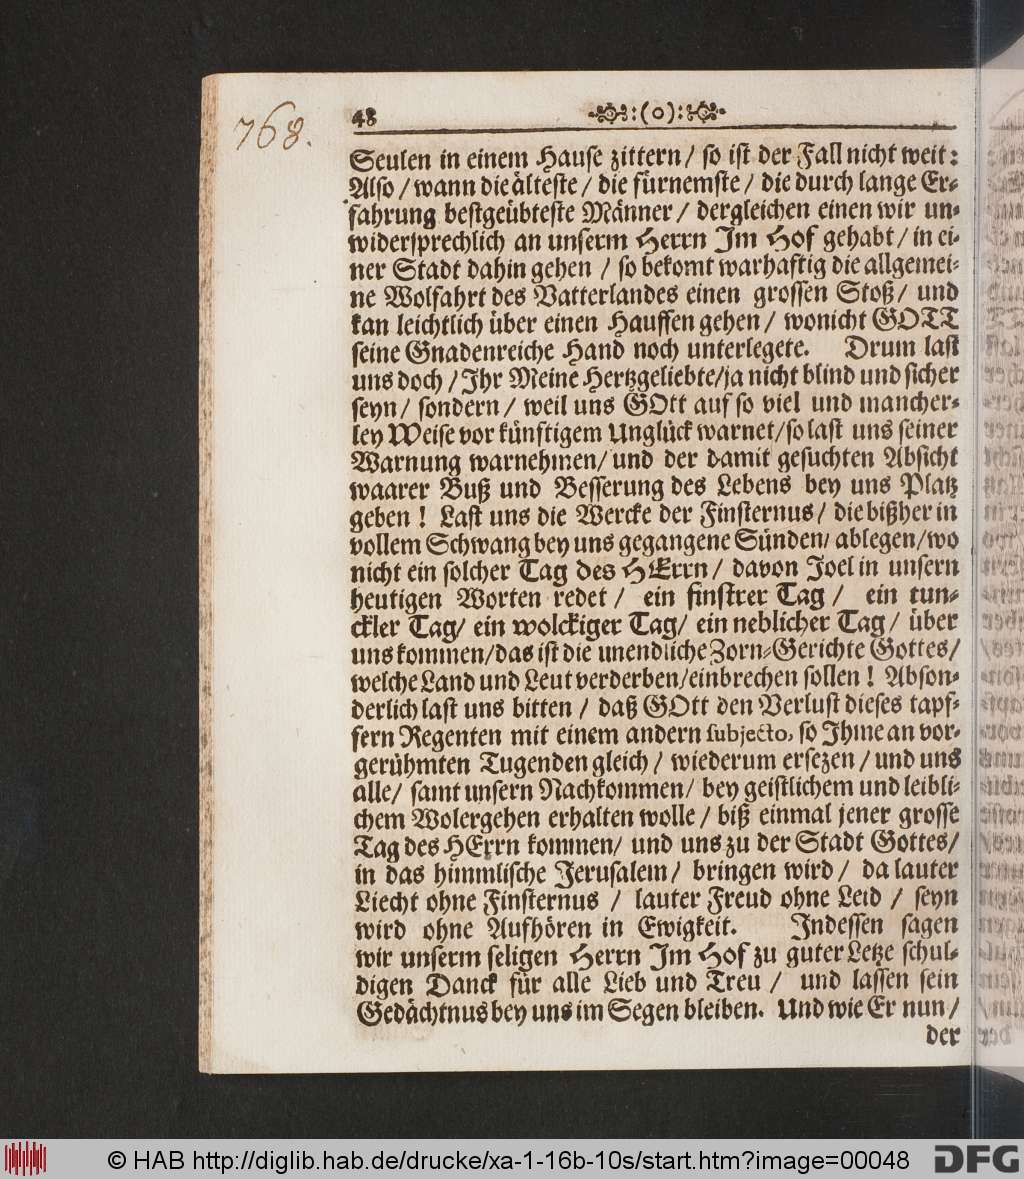 768.
48 :(o):
Seulen in einem Hause zittern/ so ist der Fall nicht weit:
Also/ wann die älteste/ die fürnemste/ die durch lange Er-
fahrung bestgeübteste Männer/ dergleichen einen wir un-
widersprechlich an unserm Herrn Im Hof gehabt/ in ei-
ner Stadt dahin gehen/ so bekomt warhaftig die allgemei-
ne Wolfahrt des Vatterlandes einen grossen Stoß/ und
kan leichtlich über einen Hauffen gehen/ wonicht GOTT
seine Gnadenreiche Hand noch unterlegete. Drum last
uns doch/ Ihr Meine Hertzgeliebte/ ja nicht blind und sicher
seyn/ sondern/ weil uns GOtt auf so viel und mancher-
ley Weise vor künftigem Unglück warnet/ so last uns seiner
Warnung warnehmen/ und der damit gesuchten Absicht
waarer Buß und Besserung des Lebens bey uns Platz
geben! Last uns die Wercke der Finsternus/ die bißher in
vollem Schwang bey uns gegangene Sünden/ ablegen/ wo
nicht ein solcher Tag des HErrn/ davon Joel in unsern
heutigen Worten redet/ ein finstrer Tag/ ein tun-
ckler Tag/ ein wolckiger Tag/ ein neblicher Tag/ über
uns kommen/ das ist die unendliche Zorn-Gerichte Gottes/
welche Land und Leut verderben/ einbrechen sollen! Abson-
derlich last uns bitten/ daß GOtt den Verlust dieses tapf-
fern Regenten mit einem andern subjecto, so Ihme an vor-
gerühmten Tugenden gleich/ wiederum ersezen/ und uns
alle/ samt unsern Nachkommen/ bey geistlichem und leibli-
chem Wolergehen erhalten wolle/ biß einmal jener grosse
Tag des HErrn kommen/ und uns zu der Stadt Gottes/
in das himmlische Jerusalem/ bringen wird/ da lauter
Liecht ohne Finsternus/ lauter Freud ohne Leid/ seyn
wird ohne Aufhören in Ewigkeit. Indessen sagen
wir unserm seligen Herrn Im Hof zu guter Letze schul-
digen Danck für alle Lieb und Treu/ und lassen sein
Gedächtnus bey uns im Segen bleiben. Und wie Er nun/
der
© HAB http://diglib.hab.de/drucke/xa-1-16b-10s/start.htm?image=00048 DFG